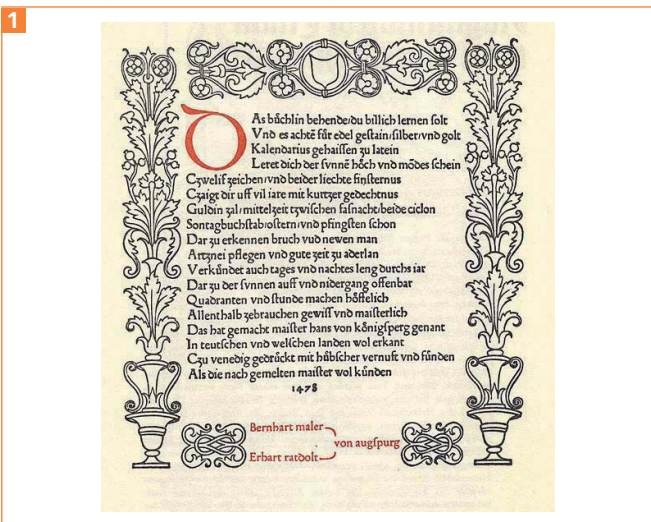 1
Das bůchlin behende/du billich lernen solt
Vnd es achtē fůr edel gestain/silber/vnd golt
Kalendarius gehaissen zu latein
Leret dich der svnnē hŏch vnd mōdes schein
Czwelif zeichen/vnd beider liechte finsternus
Czaigt dir uff vil iare mit kurtzer gedechtnus
Guldin zal/mittelzeit tzwischen fasnacht/beide ciclon
Sontagbuchstab/ostern/vnd pfingsten schon
Dar zu erkennen bruch vud newen man
Artznei pflegen vnd gute zeit zu aderlan
Verkůndet auch tages vnd nachtes leng durchs iar
Dar zu der svnnen auff vnd nidergang offenbar
Quadranten vnd stunde machen hŏffelich
Allenthalb zebrauchen gewiss vnd maisterlich
Das hat gemacht maister hans von kŏnigsperg genant
In teutschen vnd welschen landen wol erkant
Czu venedig gedrůckt mit hůbscher vernuft vnd fůnden
Als die nach gemelten maister wol kůnden
1478
Bernhart maler
von augspurg
Erhart ratdolt